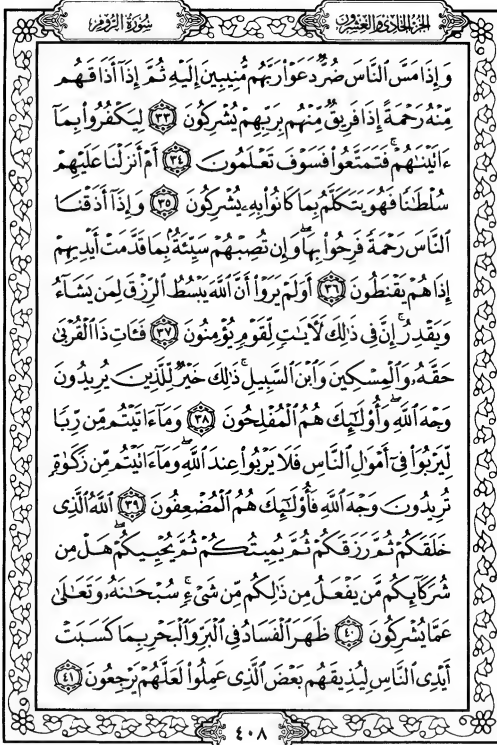 الجزء الحادي والعشرون
سورة الروم
وَإِذَا مَسَّ ٱلنَّاسَ ضُرٌّ دَعَوْا۟ رَبَّهُم مُّنِيبِينَ إِلَيْهِ ثُمَّ إِذَآ أَذَاقَهُم
مِّنْهُ رَحْمَةً إِذَا فَرِيقٌ مِّنْهُم بِرَبِّهِمْ يُشْرِكُونَ ٣٣ لِيَكْفُرُوا۟ بِمَآ
ءَاتَيْنَـٰهُمْ ۚ فَتَمَتَّعُوا۟ فَسَوْفَ تَعْلَمُونَ ٣٤ أَمْ أَنزَلْنَا عَلَيْهِمْ
سُلْطَـٰنًا فَهُوَ يَتَكَلَّمُ بِمَا كَانُوا۟ بِهِۦ يُشْرِكُونَ ٣٥ وَإِذَآ أَذَقْنَا
ٱلنَّاسَ رَحْمَةً فَرِحُوا۟ بِهَا ۖ وَإِن تُصِبْهُمْ سَيِّئَةٌۢ بِمَا قَدَّمَتْ أَيْدِيهِمْ
إِذَا هُمْ يَقْنَطُونَ ٣٦ أَوَلَمْ يَرَوْا۟ أَنَّ ٱللَّهَ يَبْسُطُ ٱلرِّزْقَ لِمَن يَشَآءُ
وَيَقْدِرُ ۚ إِنَّ فِى ذَٰلِكَ لَـَٔايَـٰتٍ لِّقَوْمٍ يُؤْمِنُونَ ٣٧ فَـَٔاتِ ذَا ٱلْقُرْبَىٰ
حَقَّهُۥ وَٱلْمِسْكِينَ وَٱبْنَ ٱلسَّبِيلِ ۚ ذَٰلِكَ خَيْرٌ لِّلَّذِينَ يُرِيدُونَ
وَجْهَ ٱللَّهِ ۖ وَأُو۟لَـٰٓئِكَ هُمُ ٱلْمُفْلِحُونَ ٣٨ وَمَآ ءَاتَيْتُم مِّن رِّبًا
لِّيَرْبُوَا۟ فِىٓ أَمْوَٰلِ ٱلنَّاسِ فَلَا يَرْبُوا۟ عِندَ ٱللَّهِ ۖ وَمَآ ءَاتَيْتُم مِّن زَكَوٰةٍ
تُرِيدُونَ وَجْهَ ٱللَّهِ فَأُو۟لَـٰٓئِكَ هُمُ ٱلْمُضْعِفُونَ ٣٩ ٱللَّهُ ٱلَّذِى
خَلَقَكُمْ ثُمَّ رَزَقَكُمْ ثُمَّ يُمِيتُكُمْ ثُمَّ يُحْيِيكُمْ ۖ هَلْ مِن
شُرَكَآئِكُم مَّن يَفْعَلُ مِن ذَٰلِكُم مِّن شَىْءٍ ۚ سُبْحَـٰنَهُۥ وَتَعَـٰلَىٰ
عَمَّا يُشْرِكُونَ ٤٠ ظَهَرَ ٱلْفَسَادُ فِى ٱلْبَرِّ وَٱلْبَحْرِ بِمَا كَسَبَتْ
أَيْدِى ٱلنَّاسِ لِيُذِيقَهُم بَعْضَ ٱلَّذِى عَمِلُوا۟ لَعَلَّهُمْ يَرْجِعُونَ ٤١
٤٠٨